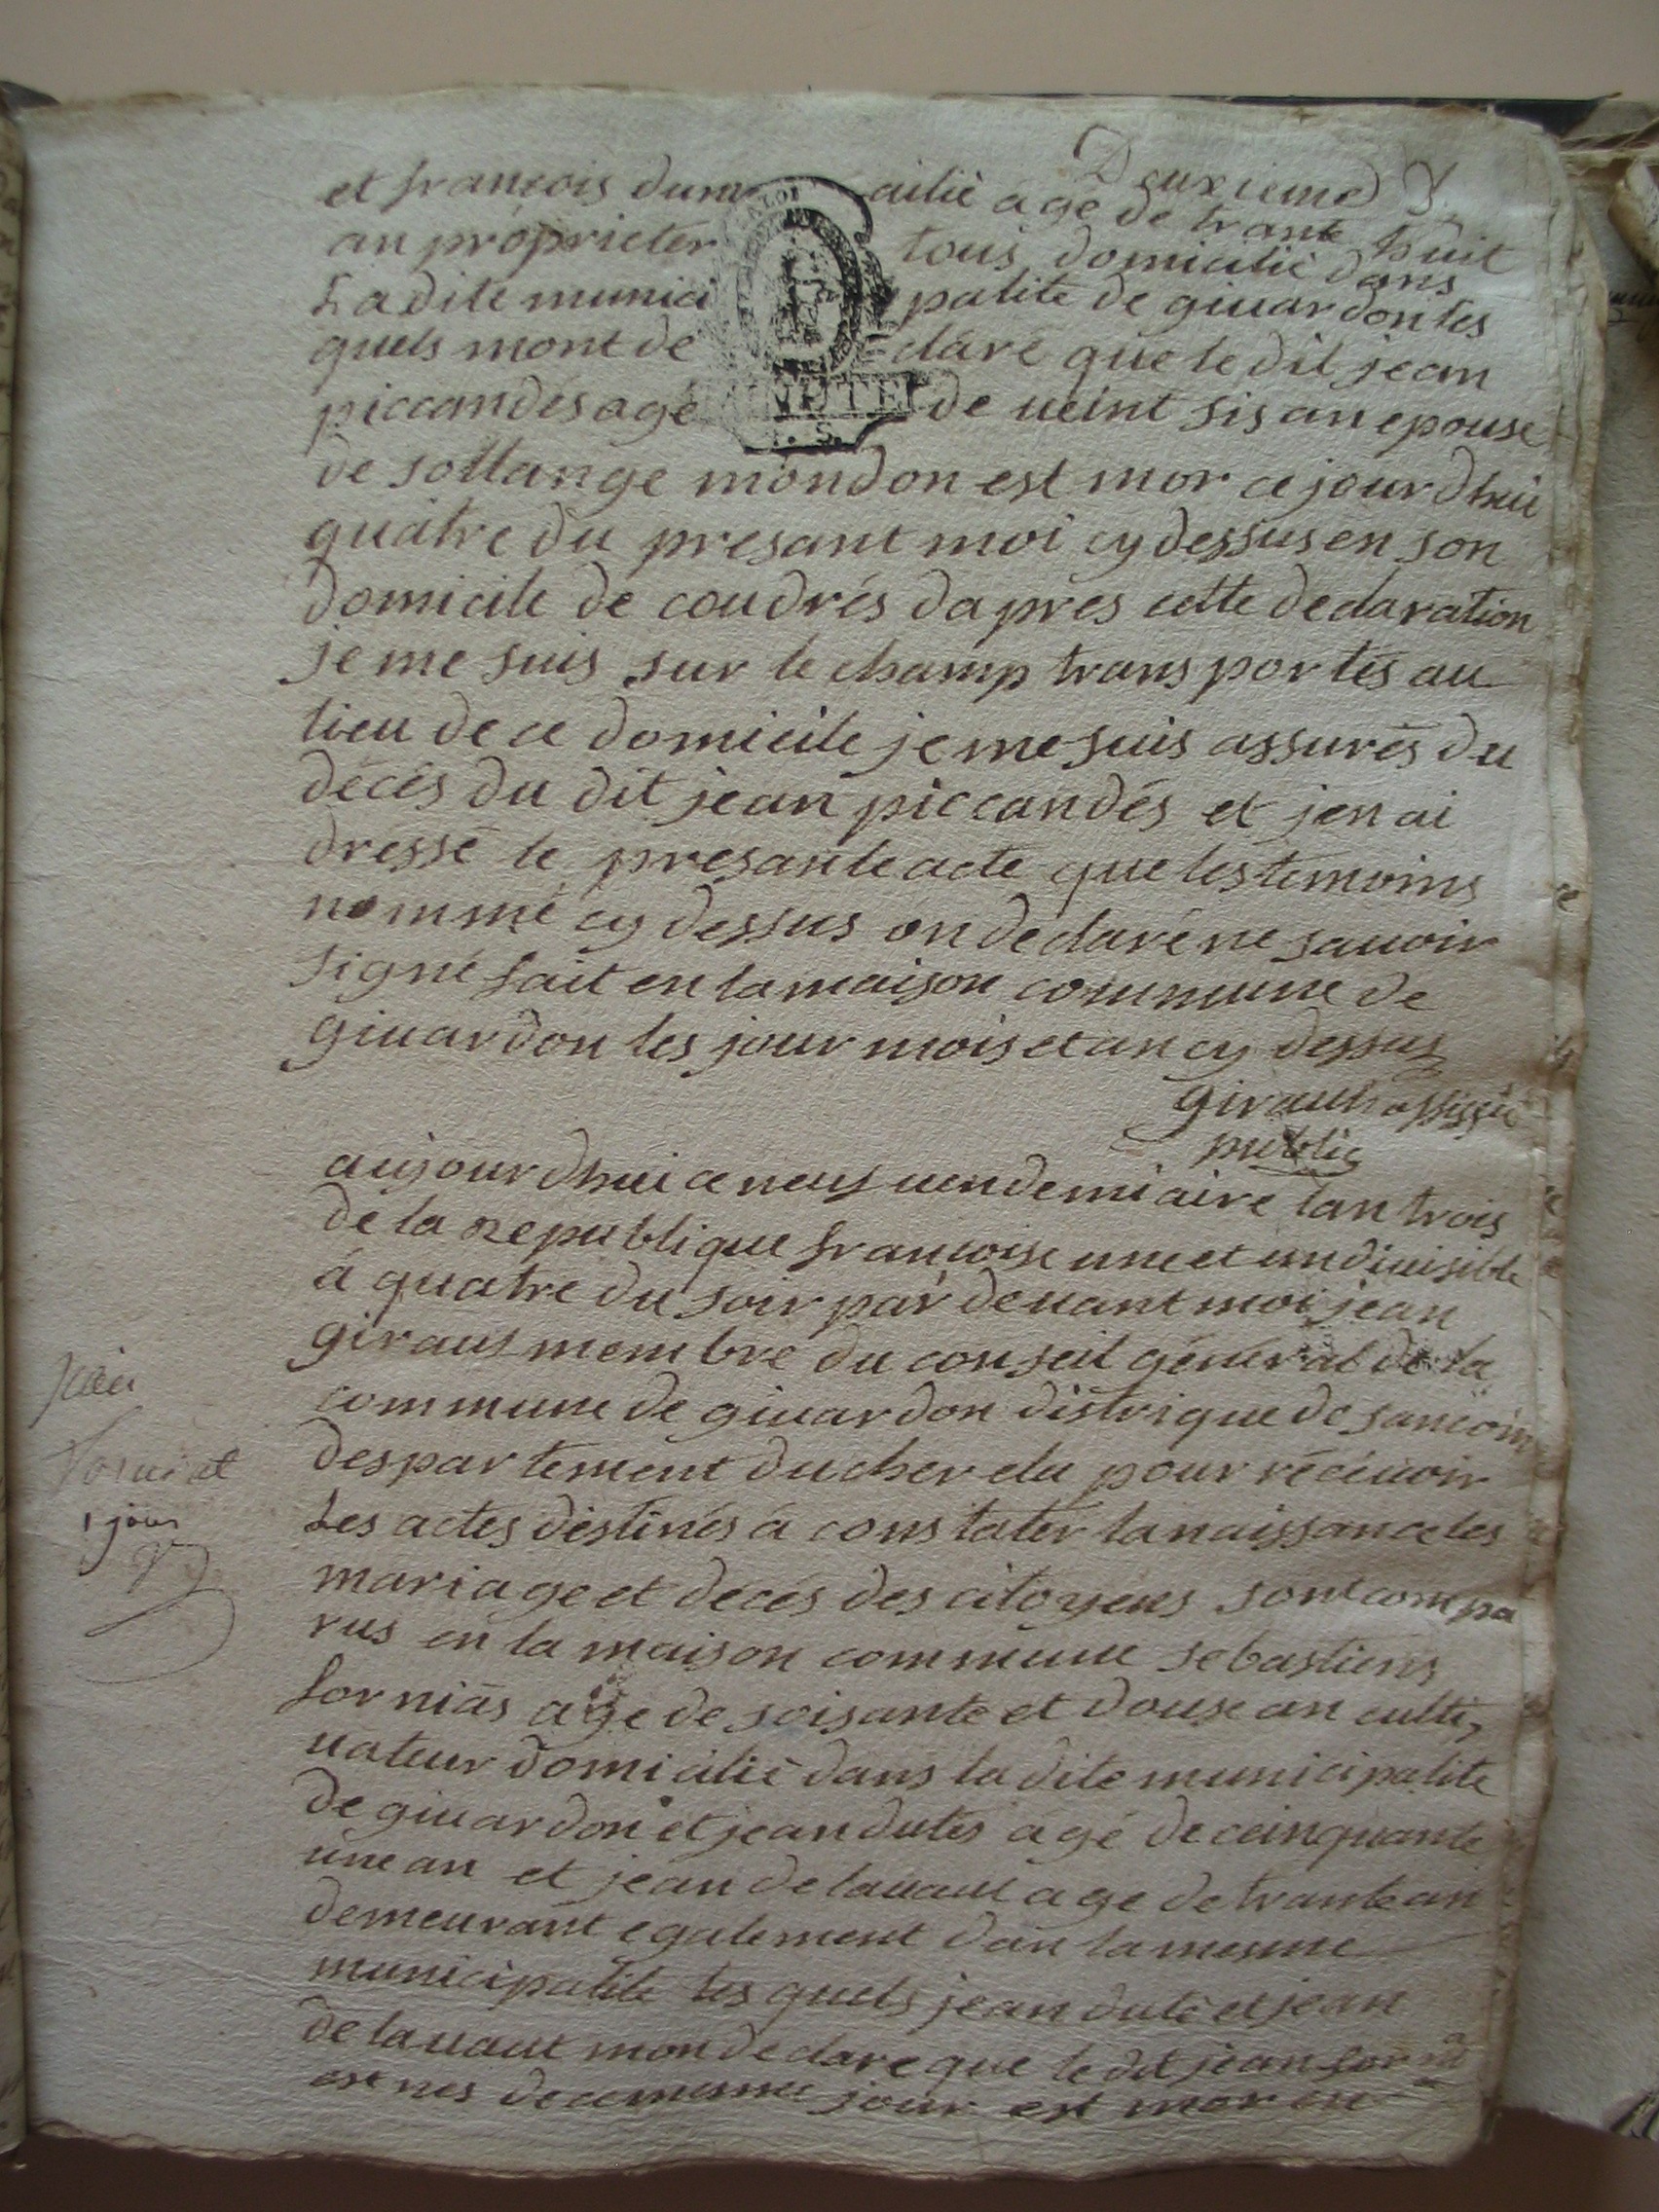 Deuxieme
et francois dum ailiè agé de trante huit
an propriéter tous domicilié dans
Ladite munici palité de giuardon les
quels mont dé claré que le dit jean
piccandés agé de ueint sis an epouse
de sollange mondon est mor ce jourdhui
quatre du presant moi cy dessus en son
domicile de coudrés dapres cette declaration
je me suis sur le champ transportés au
lieu de ce domicile je me suis assurés du
décés du dit jean piccandés et jen ai
dressé le presante acte que les temoins
nommé cy dessus on declaré ne sauoir
signé fait en la maison commune de
giuardon les jour mois et an cy dessus
public
aujourdhui ce neuf uendemiaire lan trois
de la Republique francoise une et undiuisible
á quatre du soir par deuant moi jean
giraus membre du conseil général de la
commune de giuardon distrique de sancoin
despartement du cher elu pour réceuoir
Les actes destinés a constater la naissance les
mariage et decés des citoyens sont compa
rus en la maison commune sebastiens
forniàs agé de soisante et douse an culti
uateur domicilié dans la dite municipalite
de giuardon et jean dutés agé de ceinquante
une an et jean delauaut age de trante an
demeurant egalement dan la mesme
municipalite les quels jean duté et jean
delauaut mon declare que le dit jean fornia
est nes de ce mesme jour est mor en
1 jour